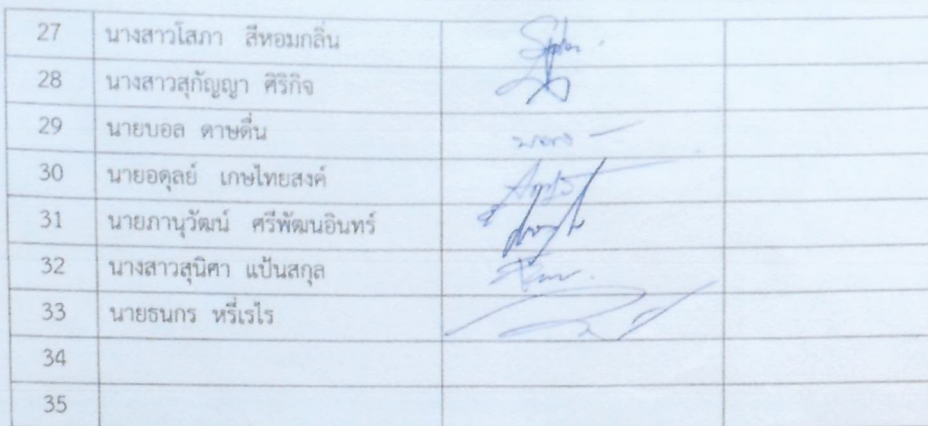 27 นางสาวโสภา สีหอมกลิ่น
28 นางสาวสุกัญญา ศิริกิจ
29 นายบอล ดาษดื่น
30 นายอดุลย์ เกษไทยสงค์
31 นายภานุวัฒน์ ศรีพัฒนอินทร์
32 นางสาวสุนิศา แป้นสกุล
33 นายธนกร หรี่เรไร
34
35